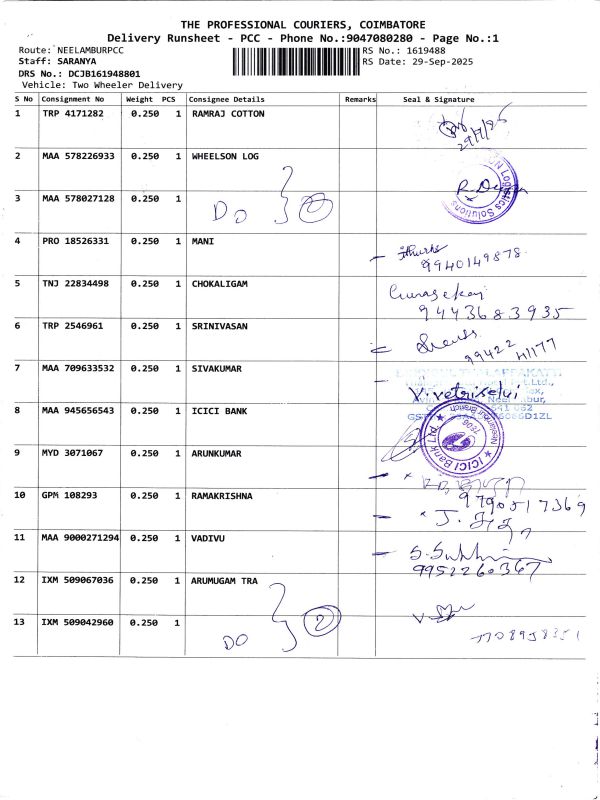 THE PROFESSIONAL COURIERS, COIMBATORE
Delivery Runsheet - PCC - Phone No.:9047080280 - Page No.:1
Route: NEELAMBURPCC RS No.: 1619488
Staff: SARANYA RS Date: 29-Sep-2025
DRS No.: DCJB161948801
Vehicle: Two Wheeler Delivery
S No Consignment No Weight PCS Consignee Details Remarks Seal & Signature
1 TRP 4171282 0.250 1 RAMRAJ COTTON
2 MAA 578226933 0.250 1 WHEELSON LOG
3 MAA 578027128 0.250 1 DO 2
4 PRO 18526331 0.250 1 MANI
9940149878
5 TNJ 22834498 0.250 1 CHOKALIGAM
Gunasekaj
9443683935
6 TRP 2546961 0.250 1 SRINIVASAN
99422 41177
7 MAA 709633532 1 0.250 SIVAKUMAR
V.vetriselvi
8 MAA 945656543 0.250 1 ICICI BANK
ICICI Bank Ltd.
9 MYD 3071067 0.250 1 ARUNKUMAR
10 GPM 108293 0.250 1 RAMAKRISHNA
9790517369
11 MAA 9000271294 0.250 1 VADIVU
9952260367
12 IXM 509067036 0.250 1 ARUMUGAM TRA
13 IXM 509042960 0.250 1 DO 2
7708958351